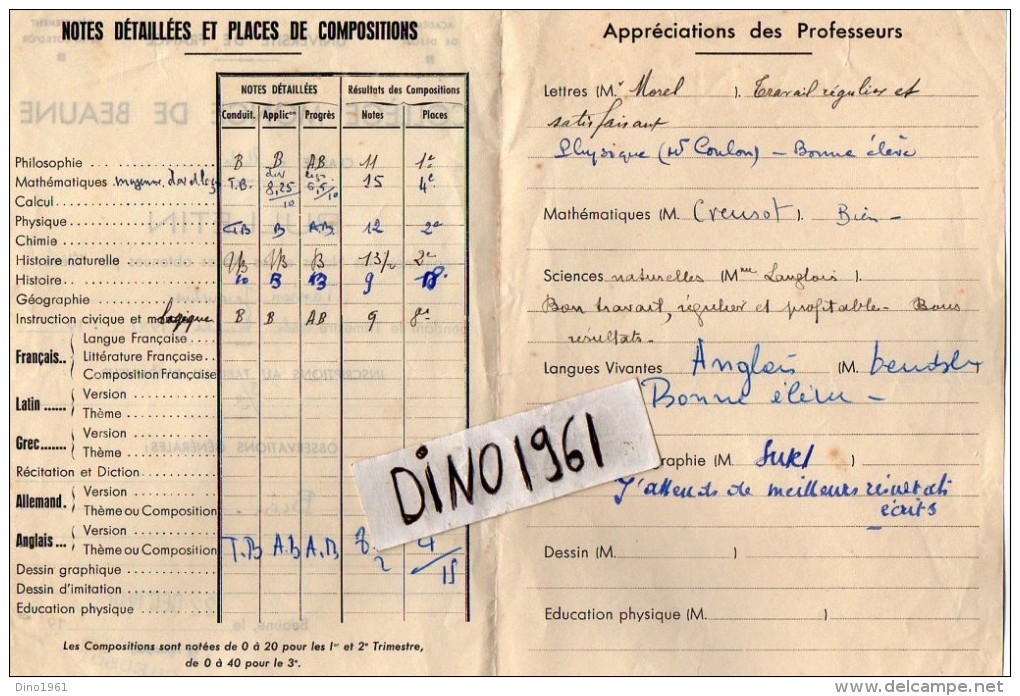 NOTES DÉTAILLÉES ET PLACES DE COMPOSITIONS
NOTES DÉTAILLÉES Résultats des Compositions
Conduit. Applicon Progrès Notes Places
Philosophie B B AB 11 1e
Mathématiques moyenne T.B. 8,25/10 15 4e
Calcul
Physique T.B B A.B. 12 2e
Chimie
Histoire naturelle TB TB B 13 1/2 2e
Histoire B B 9 18e
Géographie
Instruction civique et morale Logique B B AB 9 8e
Français.. Langue Française
Littérature Française
Composition Française
Latin ...... Version
Thème
Grec....... Version
Thème
Récitation et Diction
Allemand. Version
Thème ou Composition
Anglais ... Version
Thème ou Composition T.B A.B A.B 4/15
Dessin graphique
Dessin d'imitation
Education physique
Les Compositions sont notées de 0 à 20 pour les Ier et 2e Trimestre,
de 0 à 40 pour le 3e.
Appréciations des Professeurs
Lettres (M. Morel ). Travail régulier et
satisfaisant
Physique (Mr Coulon) - Bonne élève
Mathématiques (M. Creusot ). Bien -
Sciences naturelles (Mme Langlois ).
Bon travail, régulier et profitable - Bons
résultats -
Langues Vivantes Anglais (M.
Bonne élève -
DINO1961
graphie (M. )
J'attends de meilleurs résultats
écrits
Dessin (M. )
Education physique (M. )
COLLEGE MONGE DE BEAUNE
BULLETIN
OBSERVATIONS GÉNÉRALES:
Beaune, le 19
Dino1961
delcampe.net